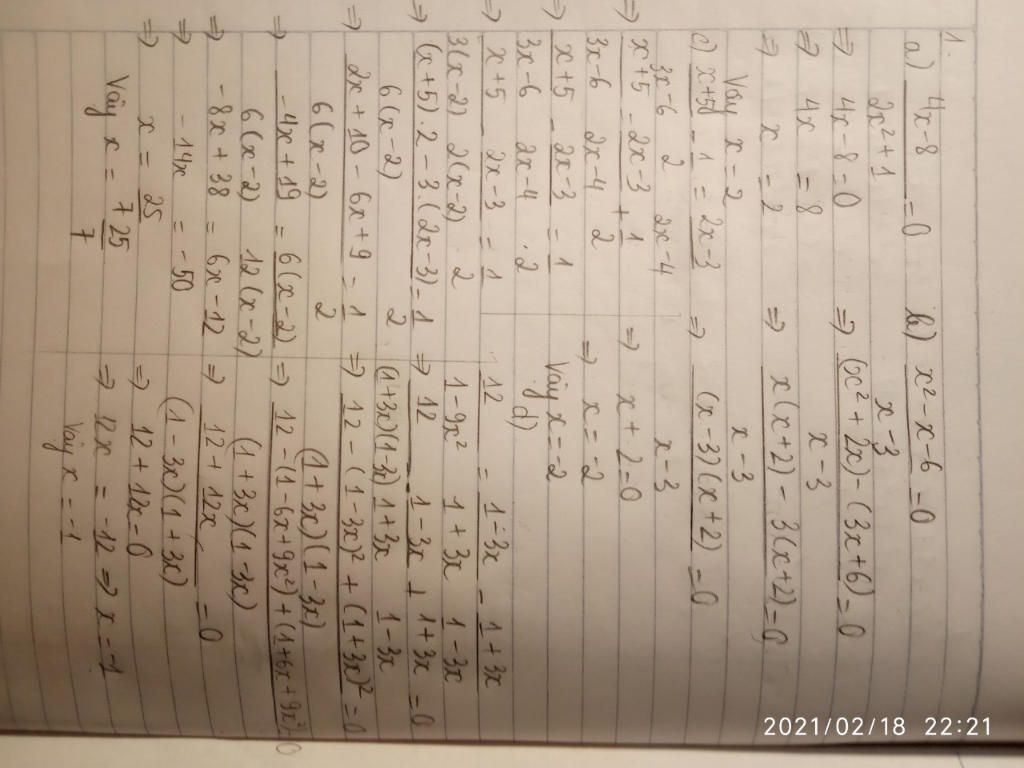 1.
a) \frac{4x-8}{2x²+1} = 0
=> 4x-8=0
=> 4x = 8
=> x = 2
Vậy x = 2
c) \frac{x+5}{3x-6} - \frac{1}{2} = \frac{2x-3}{2x-4}
=> \frac{x+5}{3x-6} - \frac{2x-3}{2x-4} + \frac{1}{2}
=> \frac{x+5}{3x-6} - \frac{2x-3}{2x-4} = \frac{1}{2}
=> \frac{x+5}{3(x-2)} - \frac{2x-3}{2(x-2)} = \frac{1}{2}
=> \frac{(x+5).2-3.(2x-3)}{6(x-2)} = \frac{1}{2}
=> \frac{2x+10-6x+9}{6(x-2)} = \frac{1}{2}
=> \frac{-4x+19}{6(x-2)} = \frac{6(x-2)}{12(x-2)}
=> -8x+38 = 6x-12
=> -14x = -50
=> x = \frac{25}{7}
Vậy x = \frac{25}{7}
b) \frac{x²-x-6}{x-3} = 0
=> \frac{(x²+2x)-(3x+6)}{x-3} = 0
=> \frac{x(x+2)-3(x+2)}{x-3} = 0
=> \frac{(x-3)(x+2)}{x-3} = 0
=> x+2=0
=> x=-2
Vậy x=-2
d)
\frac{12}{1-9x²} = \frac{1-3x}{1+3x} - \frac{1+3x}{1-3x}
=> \frac{12}{(1+3x)(1-3x)} - \frac{1-3x}{1+3x} + \frac{1+3x}{1-3x} = 0
=> \frac{12-(1-3x)²+(1+3x)²}{(1+3x)(1-3x)} = 0
=> \frac{12-(1-6x+9x²)+(1+6x+9x²)}{(1+3x)(1-3x)} = 0
=> \frac{12+12x}{(1-3x)(1+3x)} = 0
=> 12+12x=0
=> 12x = -12 => x=-1
Vậy x=-1
2021/02/18 22:21